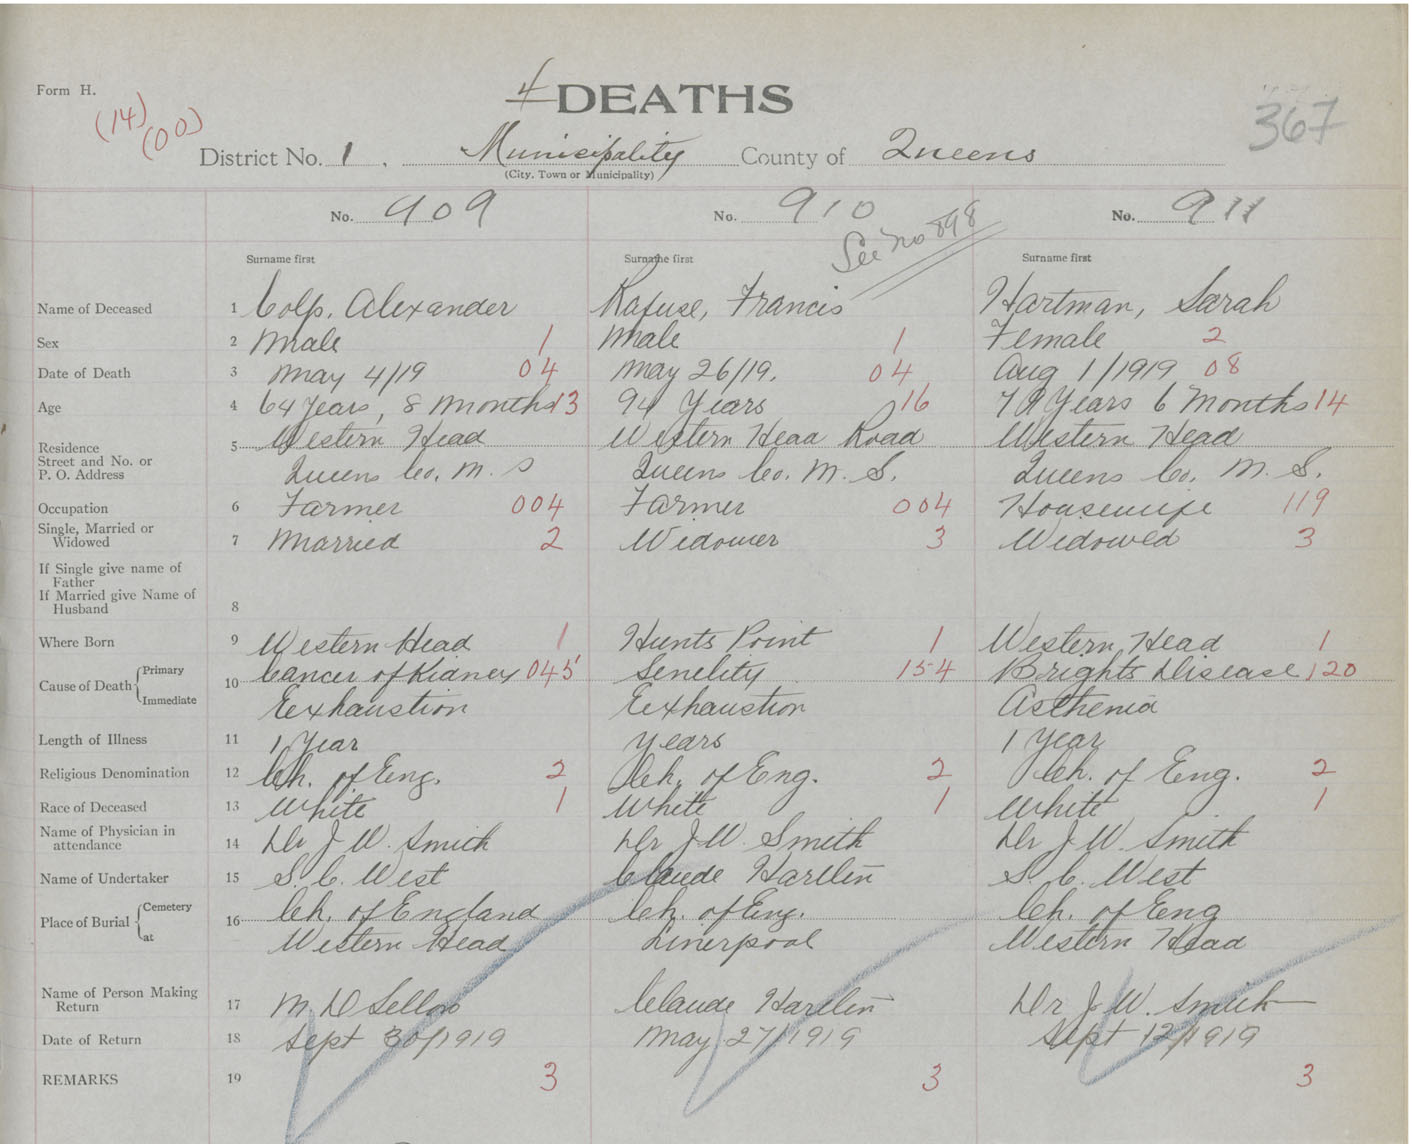 Form H.
(14)
(00)
4 DEATHS
367
District No. 1. Municipality County of Queens
(City, Town or Municipality)
No. 909 No. 910 No. 911
See no 898
Surname first Surname first Surname first
Name of Deceased 1 Colp, Alexander Rafuse, Francis Hartman, Sarah
Sex 2 Male 1 Male 1 Female 2
Date of Death 3 May 4/19 04 May 26/19. 04 Aug 1/1919 08
Age 4 64 Years, 8 Months 13 94 Years 16 79 Years 6 Months 14
Residence 5 Western Head Western Head Road Western Head
Street and No. or
P. O. Address Queens Co. N. S Queens Co. N. S. Queens Co. N. S.
Occupation 6 Farmer 004 Farmer 004 Housewife 119
Single, Married or
Widowed 7 Married 2 Widower 3 Widowed 3
If Single give name of
Father
If Married give Name of
Husband 8
Where Born 9 Western Head 1 Hunts Point 1 Western Head 1
Cause of Death Primary 10 Cancer of Kidney 045 Senelity 154 Brights Disease 120
Immediate Exhaustion Exhaustion Asthenia
Length of Illness 11 1 Year Years 1 Year
Religious Denomination 12 Ch. of Eng. 2 Ch. of Eng. 2 Ch. of Eng. 2
Race of Deceased 13 White 1 White 1 White 1
Name of Physician in
attendance 14 Dr J W. Smith Dr J W. Smith Dr J W. Smith
Name of Undertaker 15 S. C. West Claude Hartlin S. C. West
Place of Burial Cemetery 16 Ch. of England Ch. of Eng. Ch. of Eng
at Western Head Liverpool Western Head
Name of Person Making
Return 17 M D Sellon Claude Hartlin Dr J W. Smith
Date of Return 18 Sept 30/1919 May 27/1919 Sept 12/1919
REMARKS 19 3 3 3